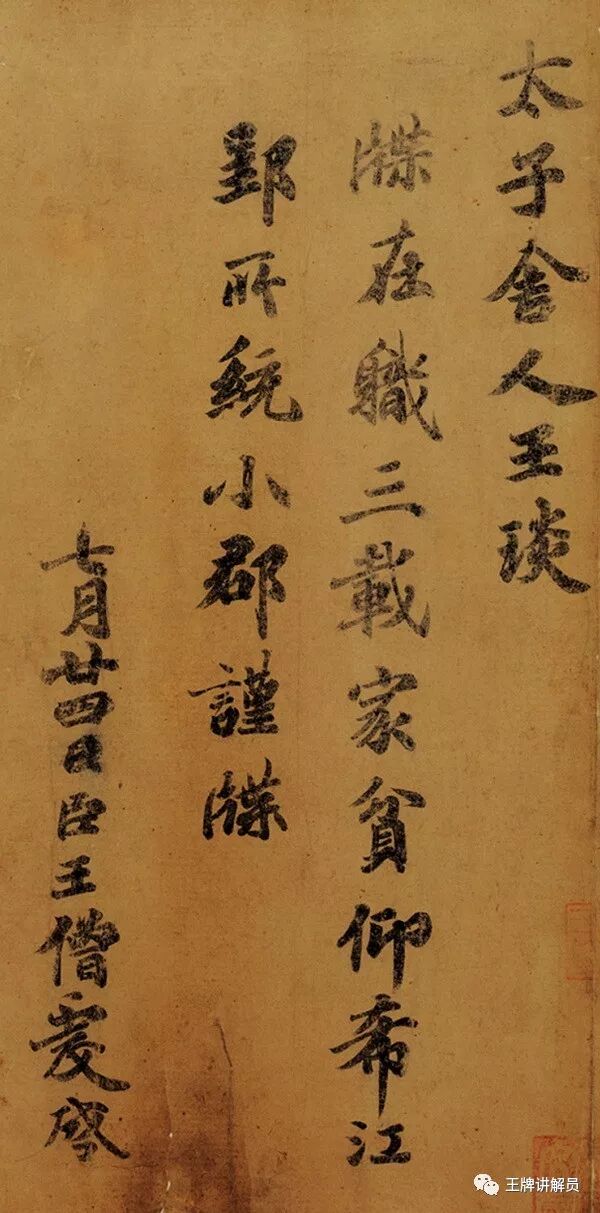 太子舍人王琰
牒在職三載家貧仰希江
郢所統小郡謹牒
七月廿四日臣王僧虔啓
王牌讲解员